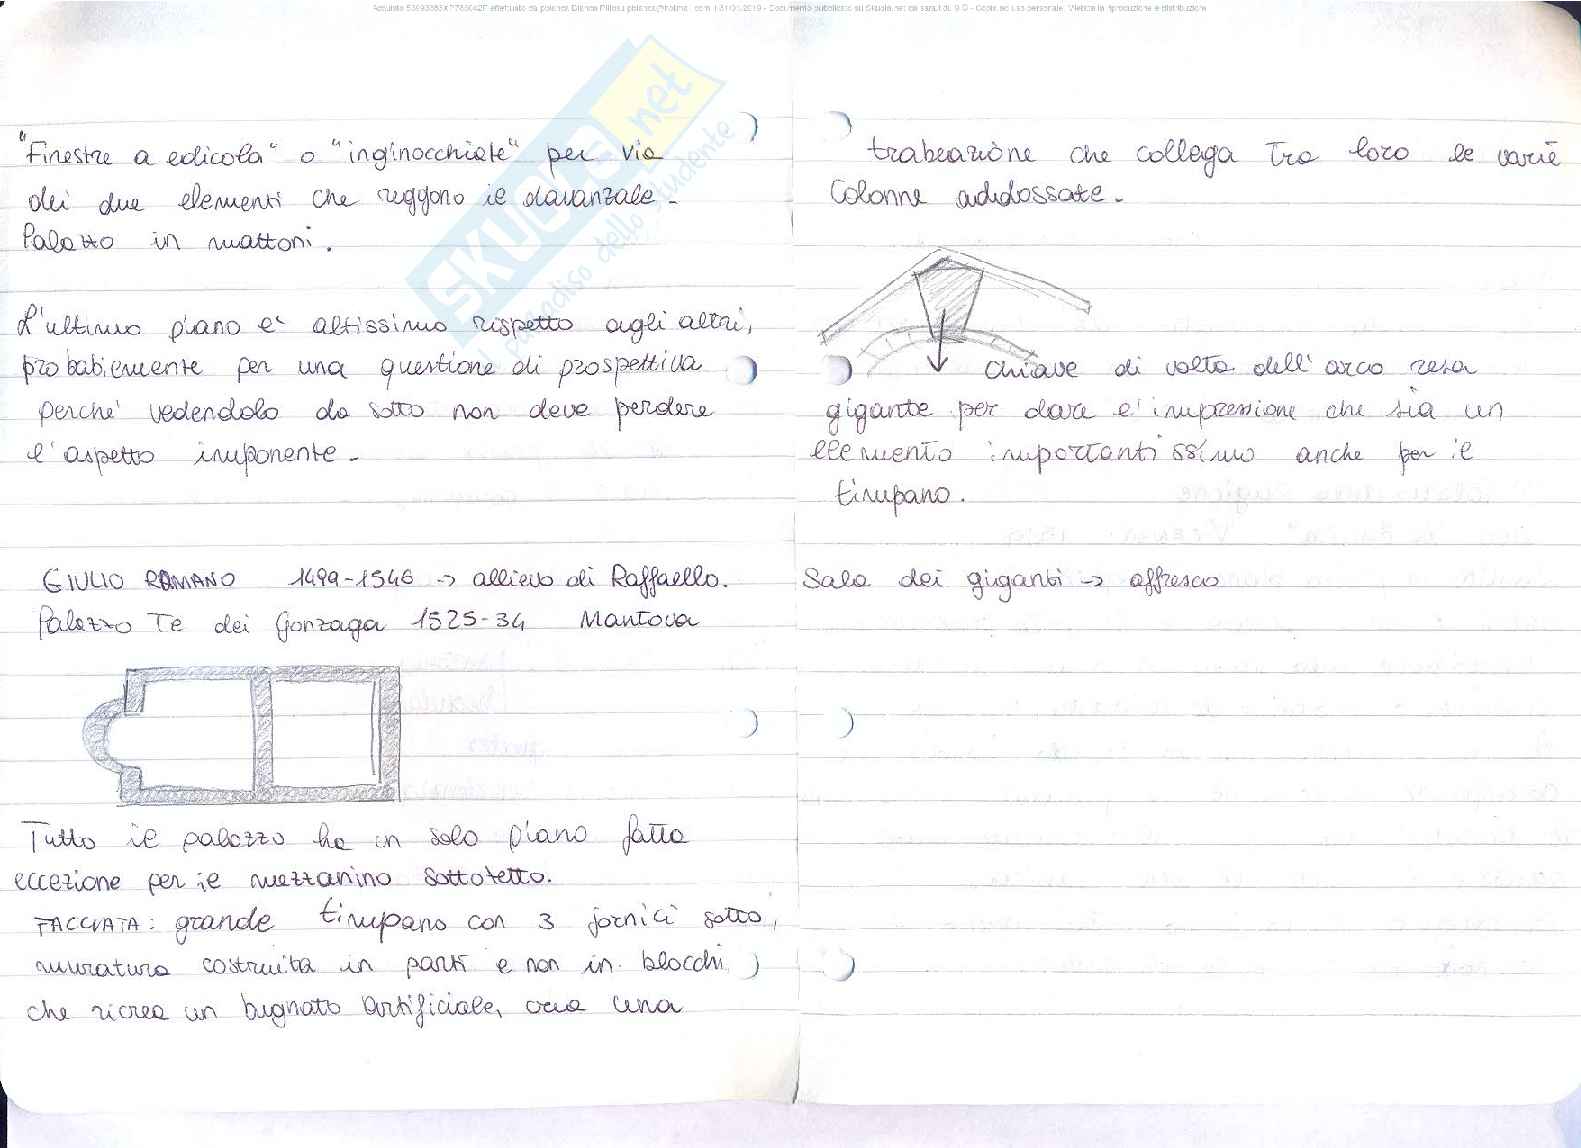 "Finestre a edicola" o "inginocchiate" per via
dei due elementi che reggono il davanzale.
Palazzo in mattoni.
L'ultimo piano è altissimo rispetto agli altri,
probabilmente per una questione di prospettiva
perché vedendolo da sotto non deve perdere
l'aspetto imponente.
GIULIO ROMANO 1499-1546 → allievo di Raffaello.
Palazzo Te dei Gonzaga 1525-34 Mantova
Tutto il palazzo ha un solo piano fatta
eccezione per il mezzanino sottotetto.
FACCIATA: grande timpano con 3 fornici sotto,
muratura costruita in parti e non in blocchi
che ricrea un bugnato artificiale, una
trabeazione che collega tra loro le varie
colonne addossate.
chiave di volta dell'arco resa
gigante per dare l'impressione che sia un
elemento importantissimo anche per il
timpano.
Sala dei giganti → affresco
SKUOLA.net
il paradiso dello studente